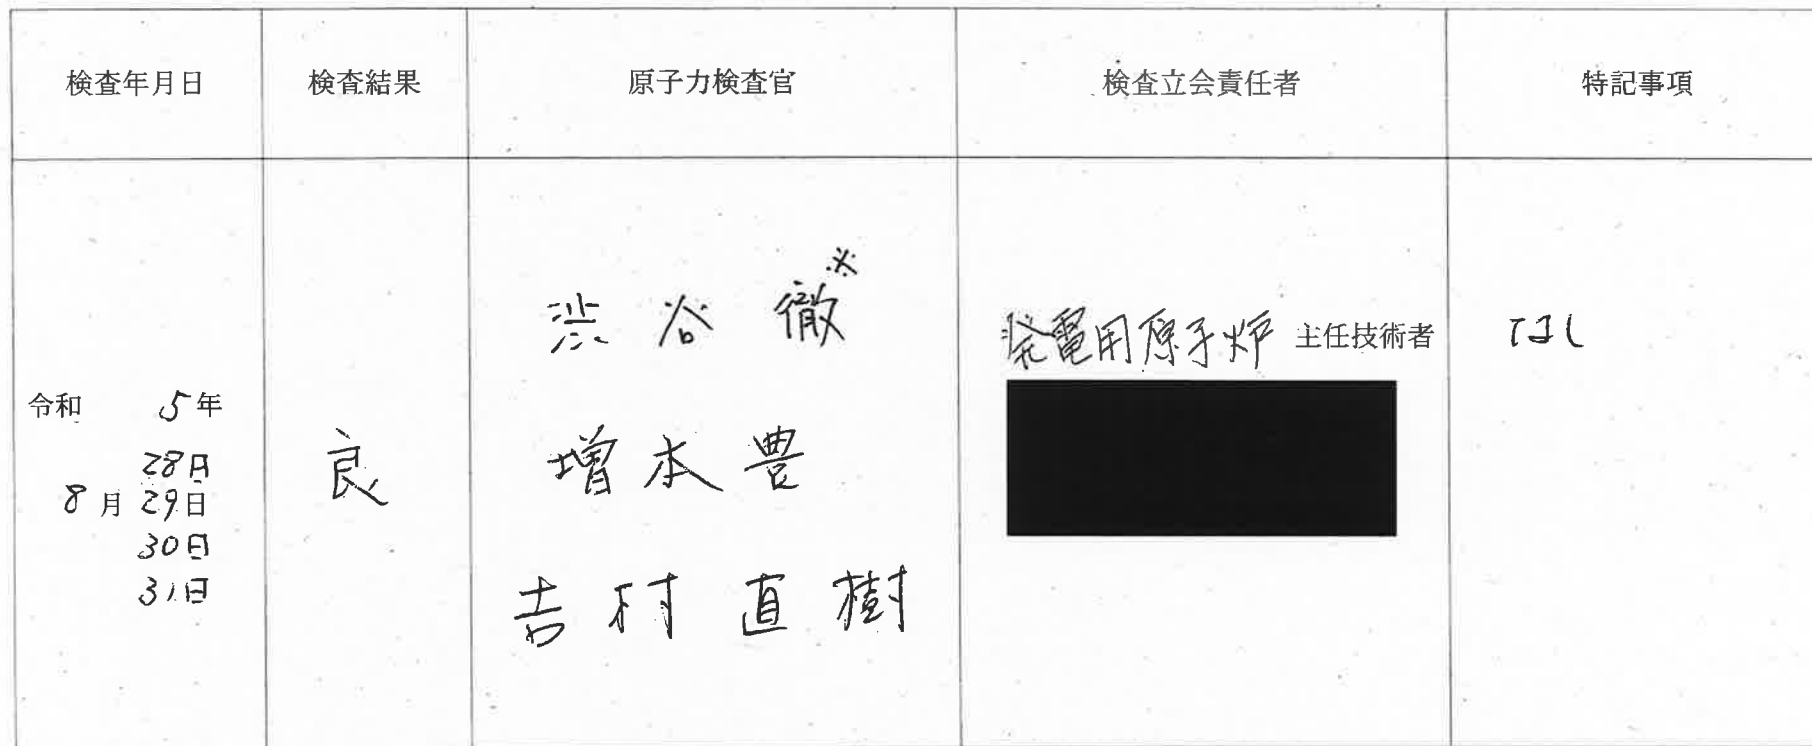 検査年月日 検査結果 原子力検査官 検査立会責任者 特記事項
令和 5年
28日
8月29日
30日
31日
良
渋谷徹※
増本豊
吉村直樹
発電用原子炉 主任技術者
なし